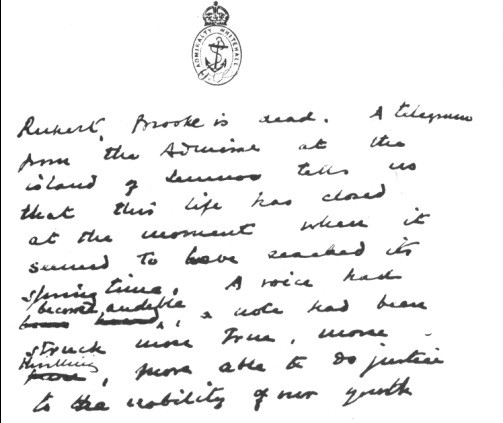 ADMIRALTY WHITEHALL
Rupert Brooke is dead. A telegram
from the Admiral at the
island of Lemnos tells us
that this life has closed
at the moment when it
seemed to have reached its
springtime. A voice had
become audible, a note had been
struck more true, more
thrilling, more able to do justice
to the nobility of our youth